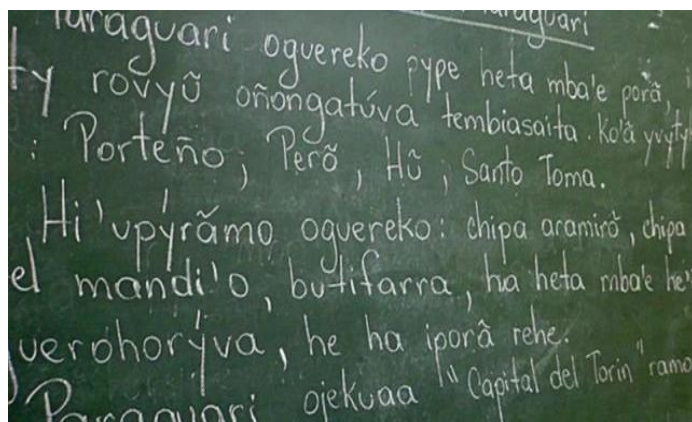 Paraguari
Paraguari oguereko pype heta mba'e porã,
ty rovyũ oñongatúva tembiasaita. Ko'ã yvyty
: Porteño, Perõ, Hũ, Santo Toma.
Hi'upýrãmo oguereko: chipa aramirõ, chipa
el mandi'o, butifarra, ha heta mba'e he'
guerohorýva, he ha iporã rehe.
Paraguari ojekuaa "Capital del Torin" ramo